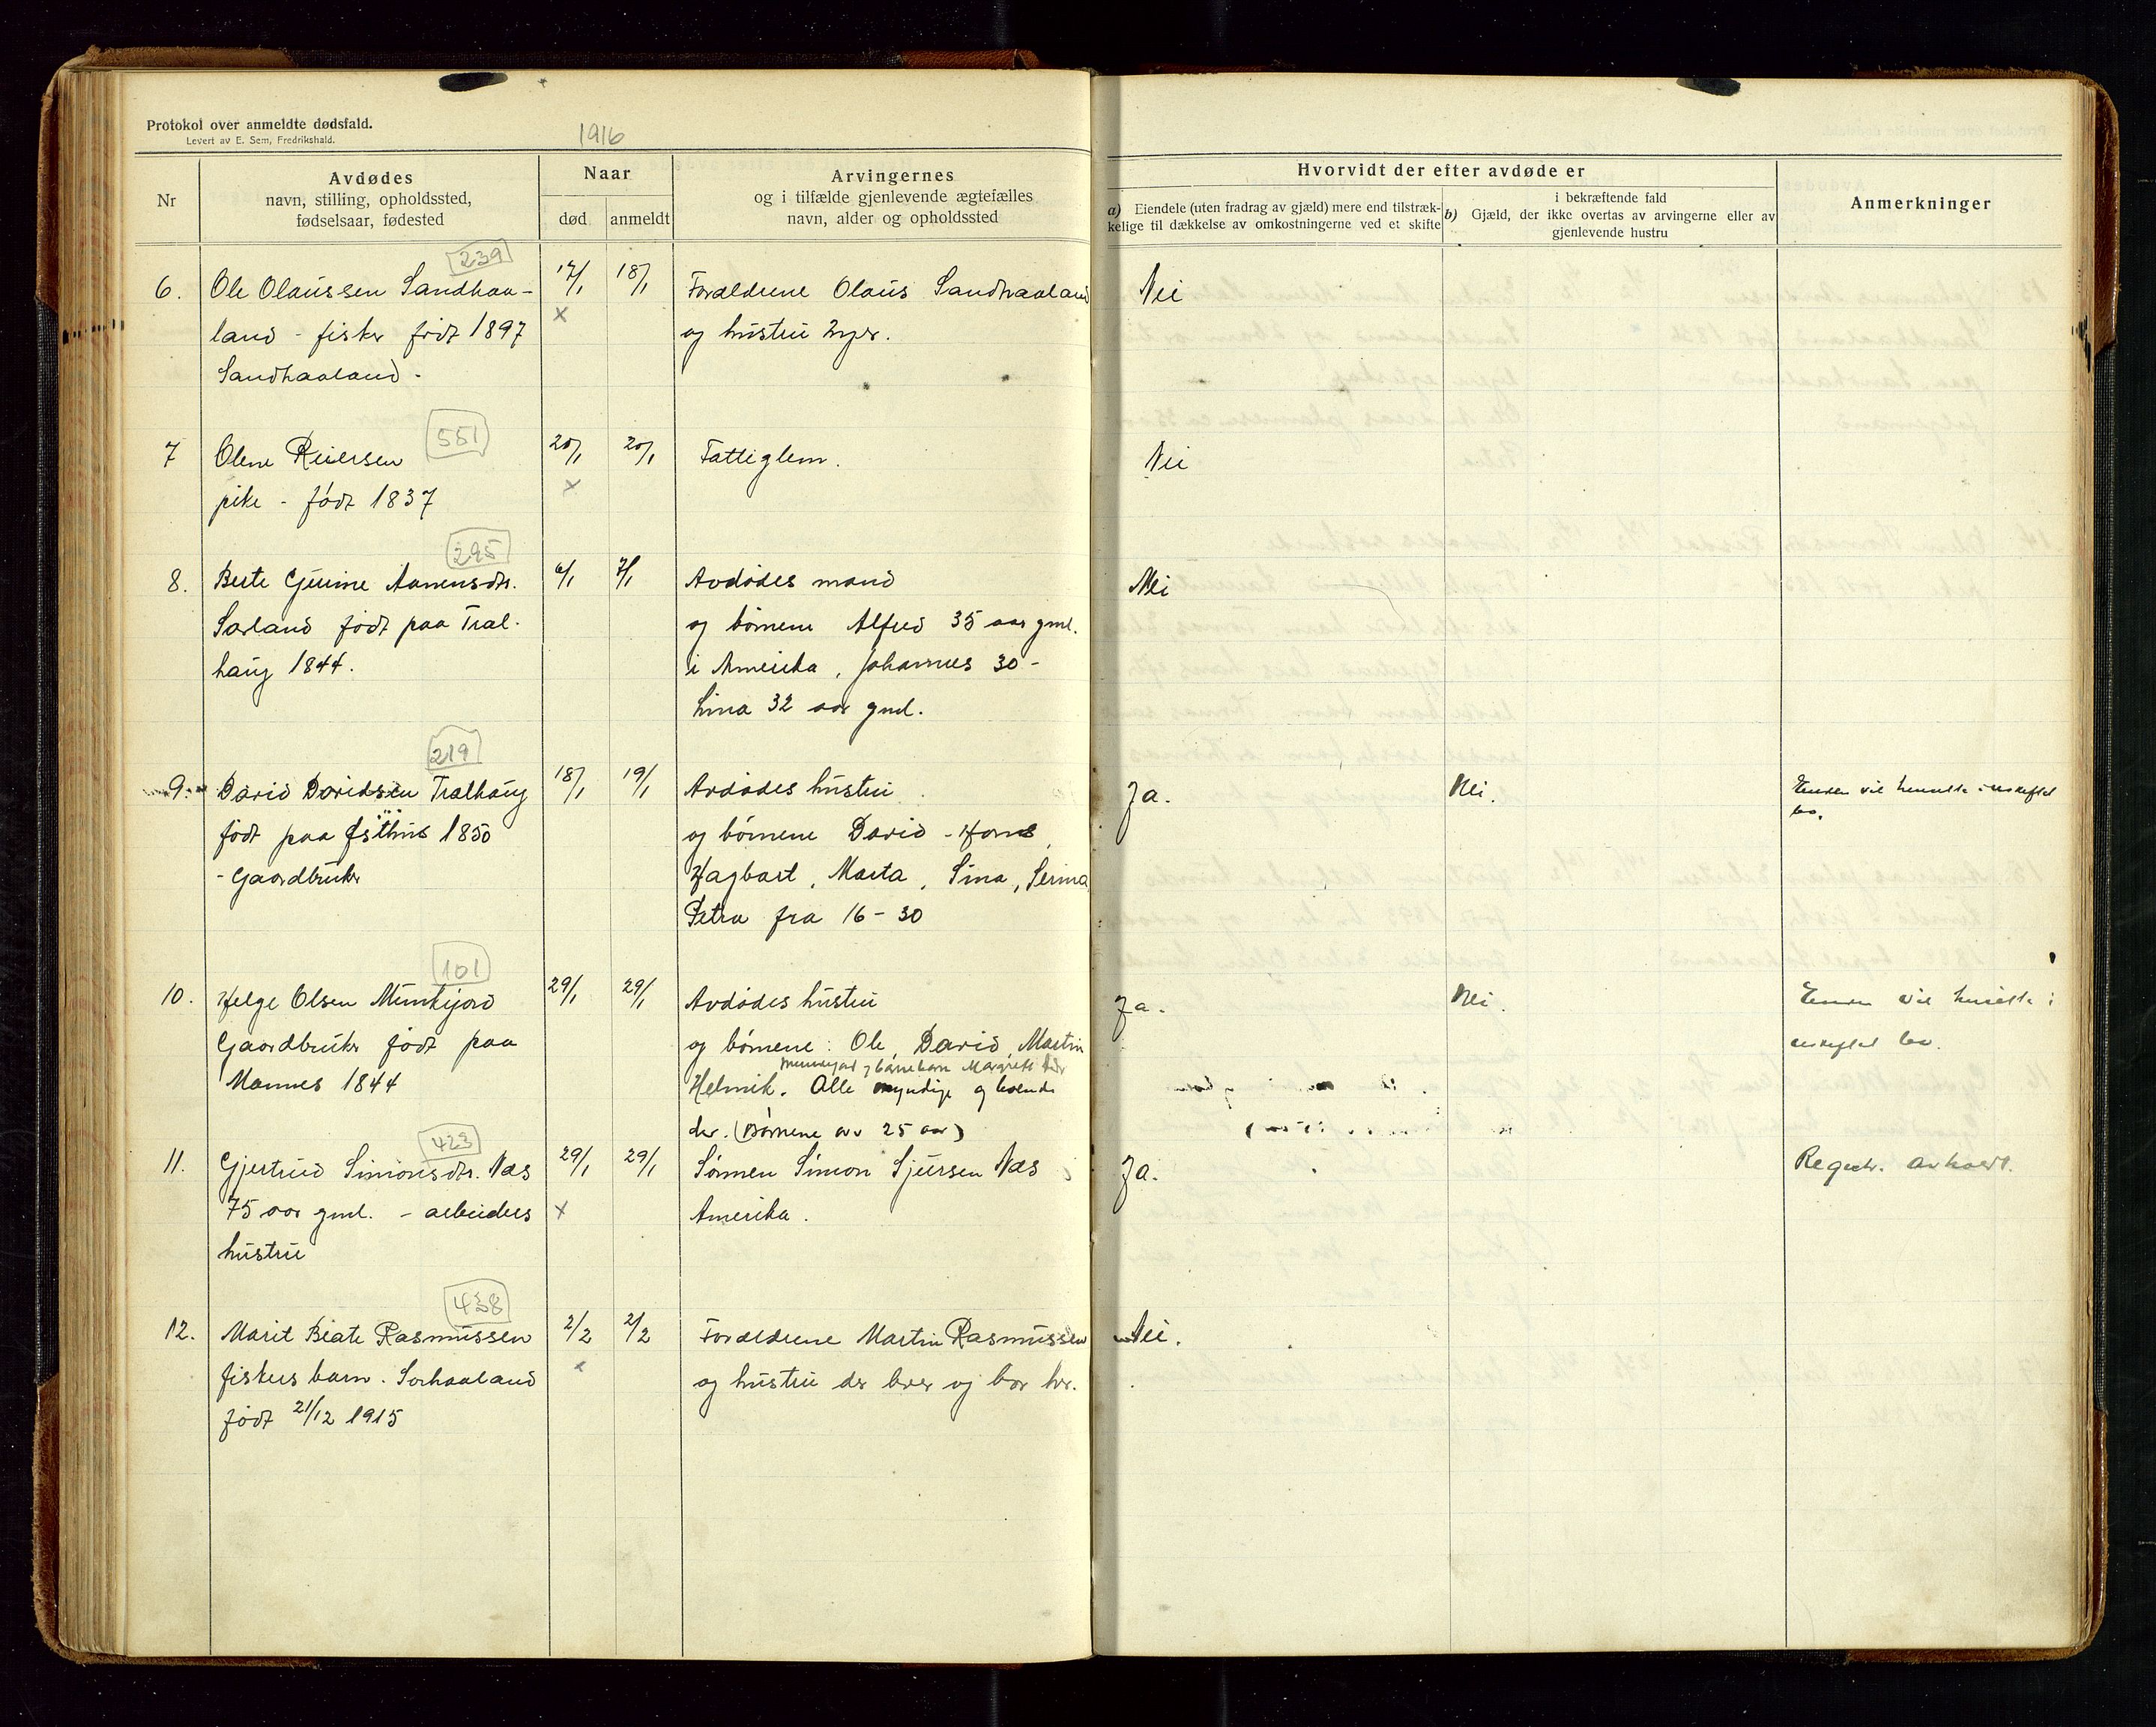 Protokol over anmeldte dødsfald.
Levert av E. Sem, Fredrikshald.
1916
Nr
Avdødes
navn, stilling, opholdssted,
fødselsaar, fødested
Naar
død
anmeldt
Arvingernes
og i tilfælde gjenlevende ægtefælles
navn, alder og opholdssted
Hvorvidt der efter avdøde er
a) Eiendele (uten fradrag av gjæld) mere end tilstræk-
kelige til dækkelse av omkostningerne ved et skifte
i bekræftende fald
b) Gjæld, der ikke overtas av arvingerne eller av
gjenlevende hustru
Anmerkninger
239
6. Ole Olaussen Sandhaa- 17/1 18/1 Forældrene Olaus Sandhaaland Nei
land - fisker født 1897 x og hustru
Sandhaaland -
551
7 Olene Reiersen 20/1 20/1 Fattiglem. Nei
pike - født 1837 x
295
8. Berte Gurine Aanensdtr. 6/1 7/1 Avdødes mand Nei
Sørland født paa Træl- og børnene Alfred 35 aar gml.
haug 1844. i Amerika, Johannes 30 -
Lina 32 aar gml.
219
9. David Davidsen Trælhaug 18/1 19/1 Avdødes hustru Ja. Nei. Enken vil hensitte i uskiftet
født paa Østhus 1850 og børnene David - Hans bo.
- Gaardbruker Hagbart, Marta, Sina, Serina
Petra fra 16 - 30
101
10. Helge Olsen Munkejord 29/1 29/1 Avdødes hustru Ja. Nei. Enken vil hensitte i
Gaardbruker født paa og børnene: Ole, David, Martin uskiftet bo.
Munkejord og barnebarn Margrete
Mannes 1844 Helmik. Alle myndige og boende
her. (Børnene over 25 aar)
423
11. Gjertrud Simonsdtr. Næs 29/1 29/1 Sønnen Simon Sjursen Næs i Ja. Registr. avholdt.
75 aar gml. - arbeiders x Amerika.
hustru
438
12. Marit Beate Rasmussen 2/2 2/2 Forældrene Martin Rasmussen Nei.
fiskers barn. Sørhaaland x og hustru der lever og bor her.
født 21/12 1915